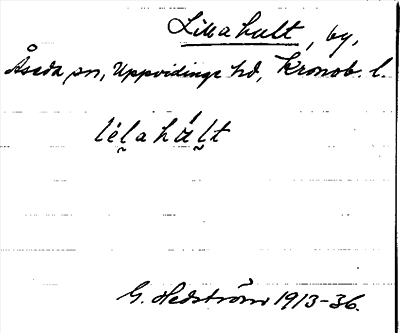 Lillahult, by,
Åseda sn, Uppvidinge hd, Kronob. l.
lélahált
G. Hedström 1913-36.